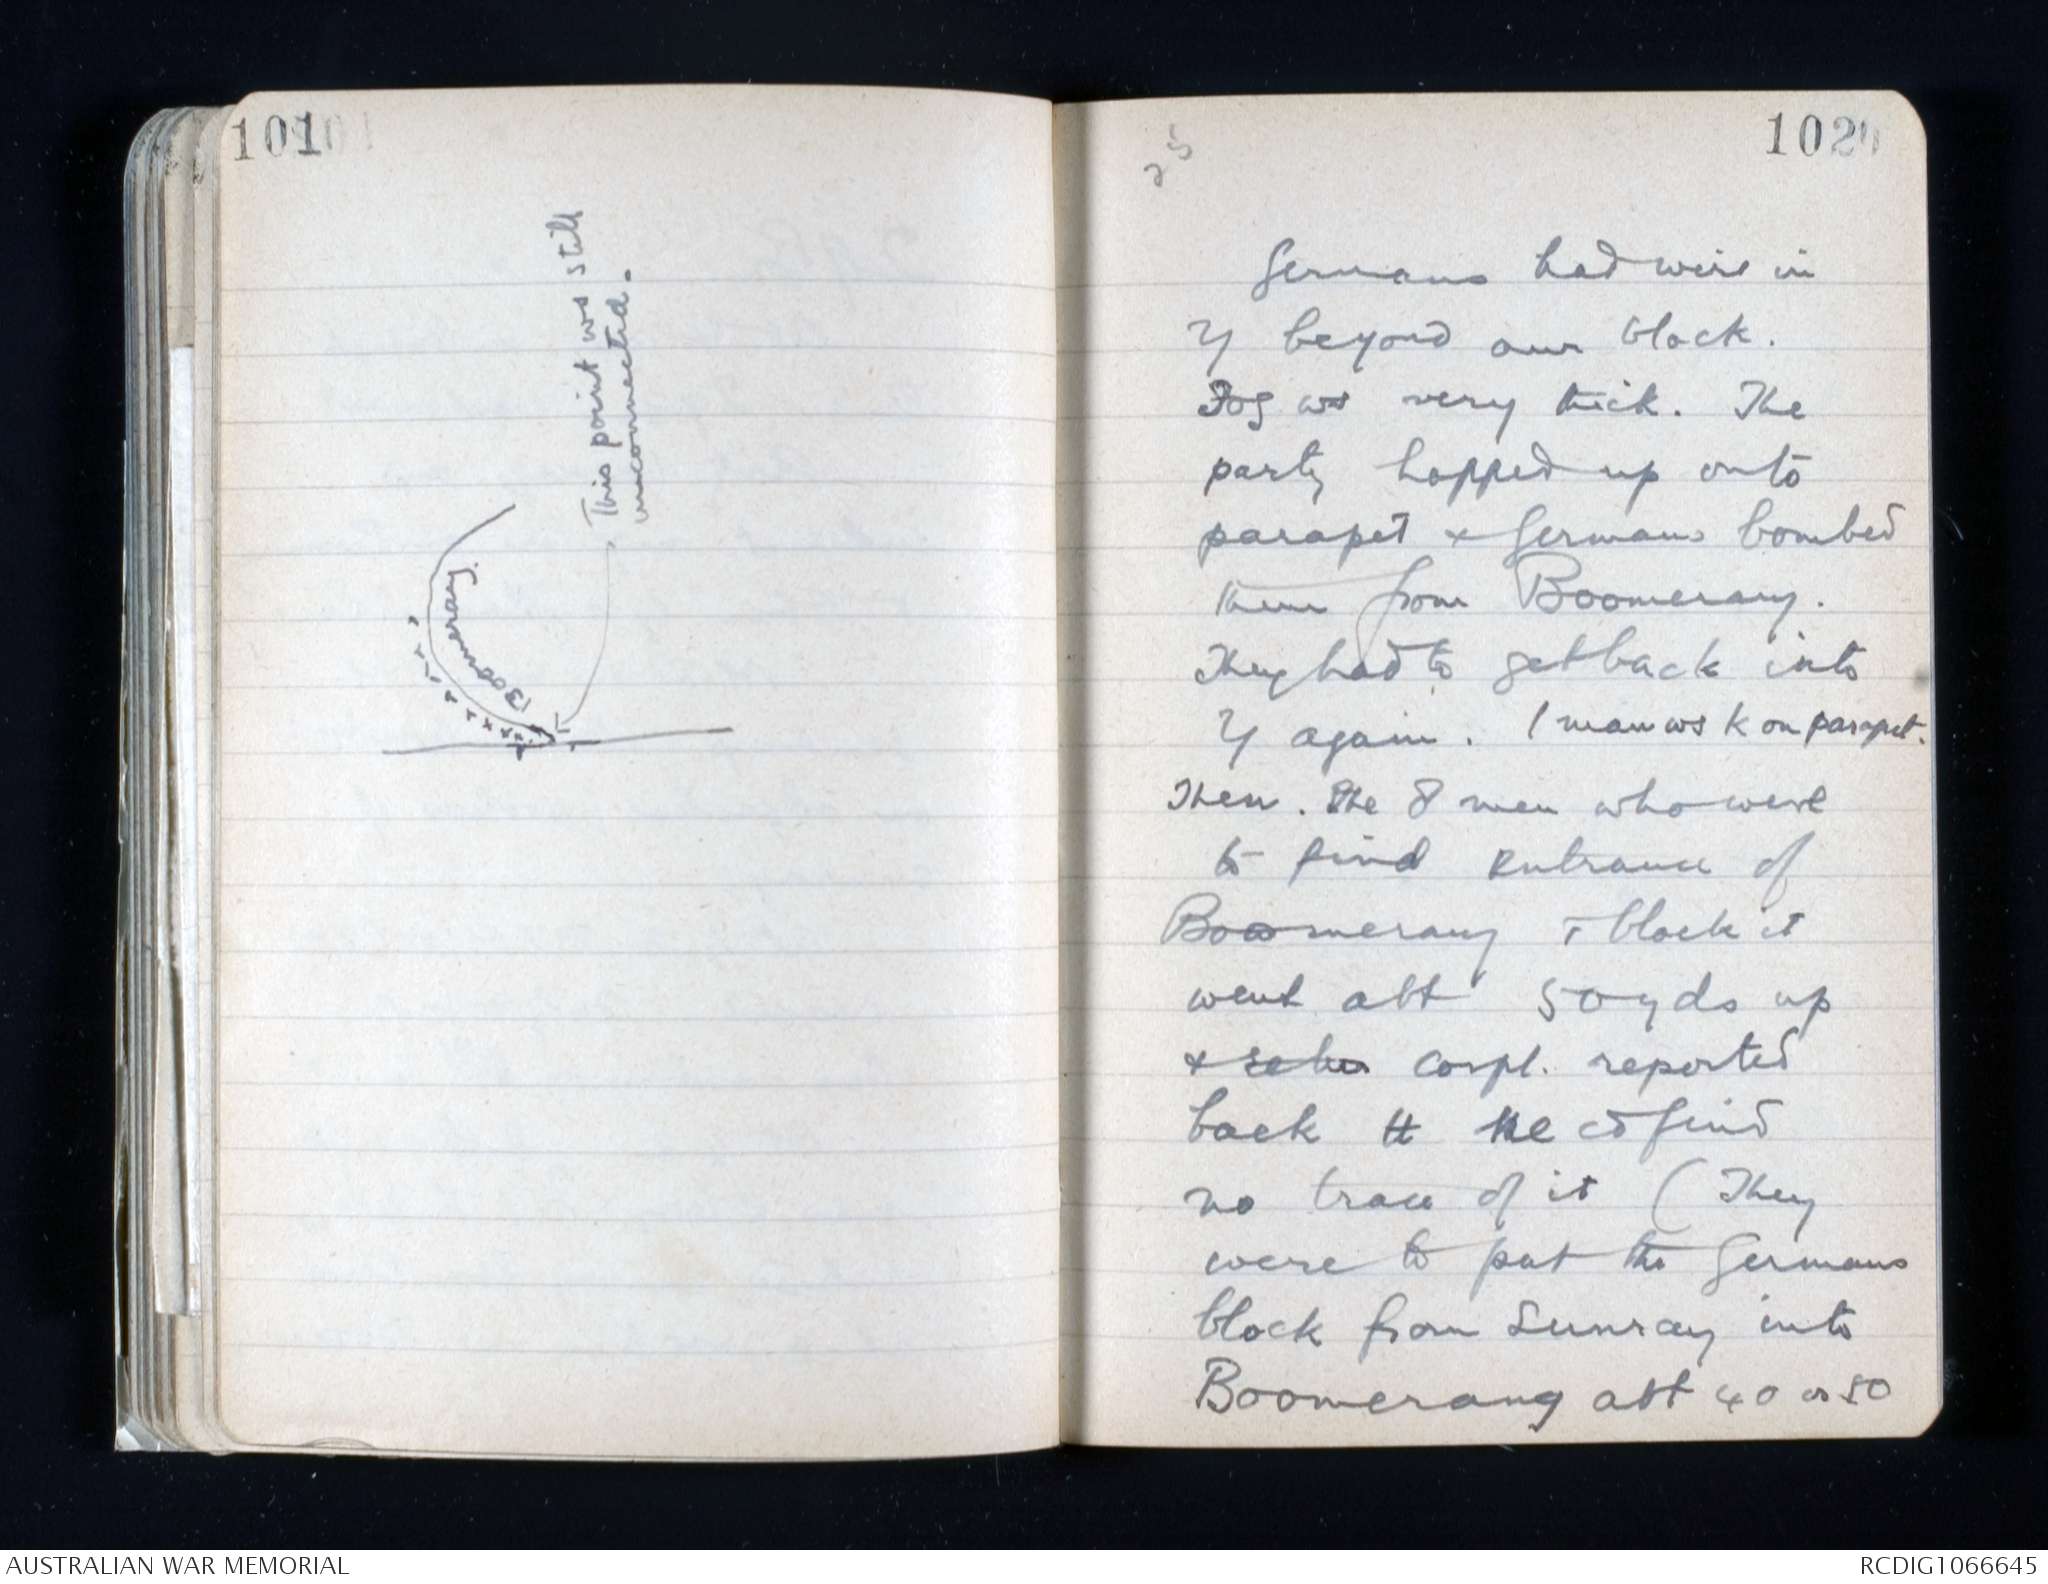 101
This point ws still
unconnected.
Boomerang.
102
25
Germans had wire in
Y beyond our block.
Fog ws very thick. The
party hopped up onto
parapet & Germans bombed
them from Boomerang.
They had to get back into
Y again. 1 man ws k on parapet.
Then. The 8 men who were
to find entrance of
Boomerang & block it
went abt 50 yds up
& corpl. reported
back tt he cd find
no trace of it (They
were to put the Germans
block from Sunray into
Boomerang abt 40 or 50
AUSTRALIAN WAR MEMORIAL
RCDIG1066645